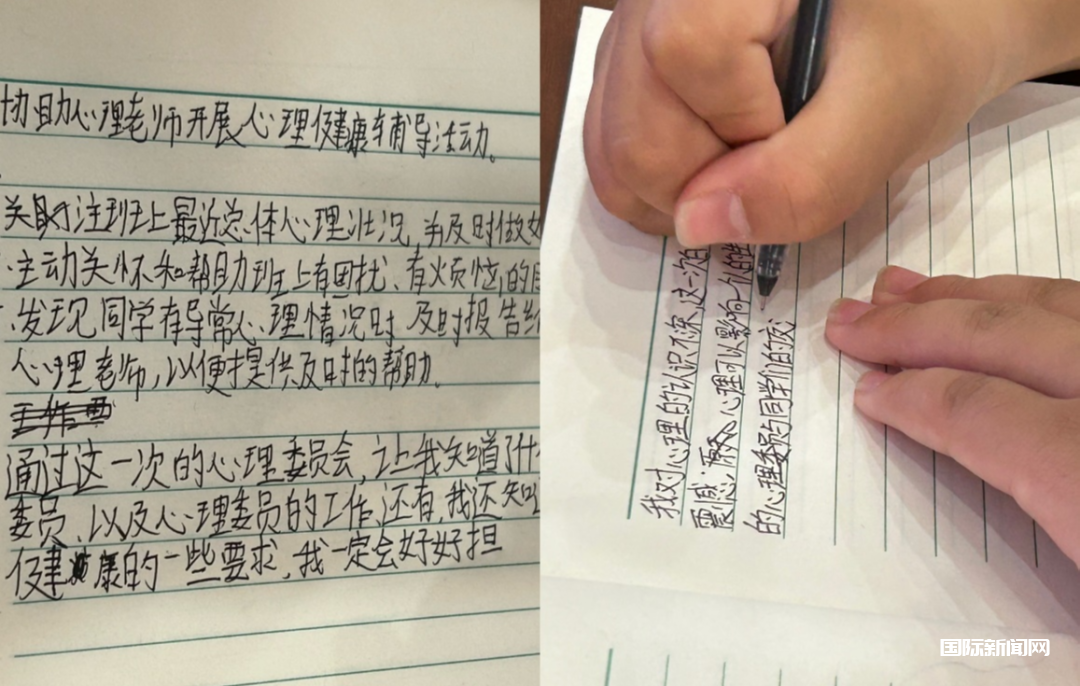 协助心理老师开展心理健康辅导活动。
关注班上最近总体心理状况,并及时做好
主动关怀和帮助班上有困扰、有烦恼的同
发现同学有异常心理情况时及时报告给
心理老师,以便提供及时的帮助。
工作
通过这一次的心理委员会,让我知道了什
委员、以及心理委员的工作,还有,我还知
健康的一些要求,我一定会好好担
我对心理的认识不深,这一次的
震感,原来心理可以影响一个人的
的心理委员与同学们的
国际新闻网